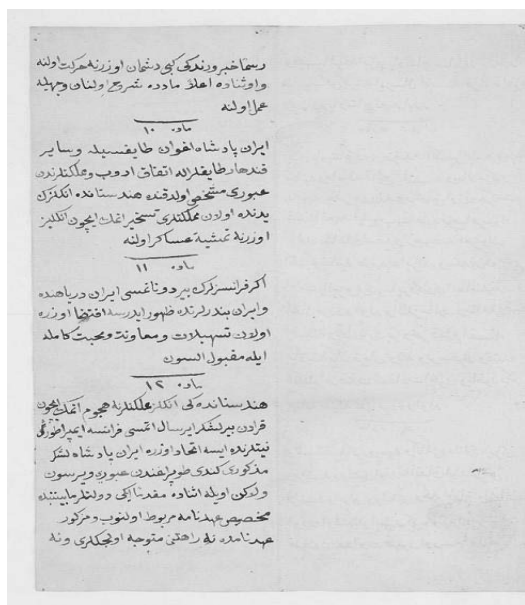 رسما خبر ویرندکی کبی دشمان اوزرنه حرکت اولنه
و اوشاده اعلاﻯ مادده شروح اولنان وجهیله
عمل اولنه
ماده ١٠
ایران پادشاه افغوان طایفسیله و سایر
قندهار طایفلرله اتفاق ادوب و مملکتلرندن
عبوری مشخص اولدقنده هندستانده انکلیزك
یدنده اولان مملکتلری تسخیر اتمك ایچون انکلیز
اوزرینه تمشیهٔ عساکر اولنه
ماده ١١
اکر فرانسزلرك بیر دوناغمسی ایران دریاهنده
و ایران بندرلرنده ظهور ایدرسه اقتضا اوزره
اولان تسهیلات و معاونت و محبت کامله
ایله مقبول السون
ماده ١٢
هندستانده کی انکلیز مملکتلرینه هجوم اتمك ایچون
قرادن بیر لشکر ایرسال اتمسی فرانسه ایمپراطورنك
نیتلرنده ایسه اتحاد اوزره ایران پادشاه لشکر
مذکوری کندی طوپراغندن عبوری ویرسون
ولکن اویله اشاده مقدما ایکی دولتلر مابیننده
مخصوص عهدنامه مربوط اولنوب و مزکور
عهدنامده نه راهتی متوجه اوله جکلری و نه